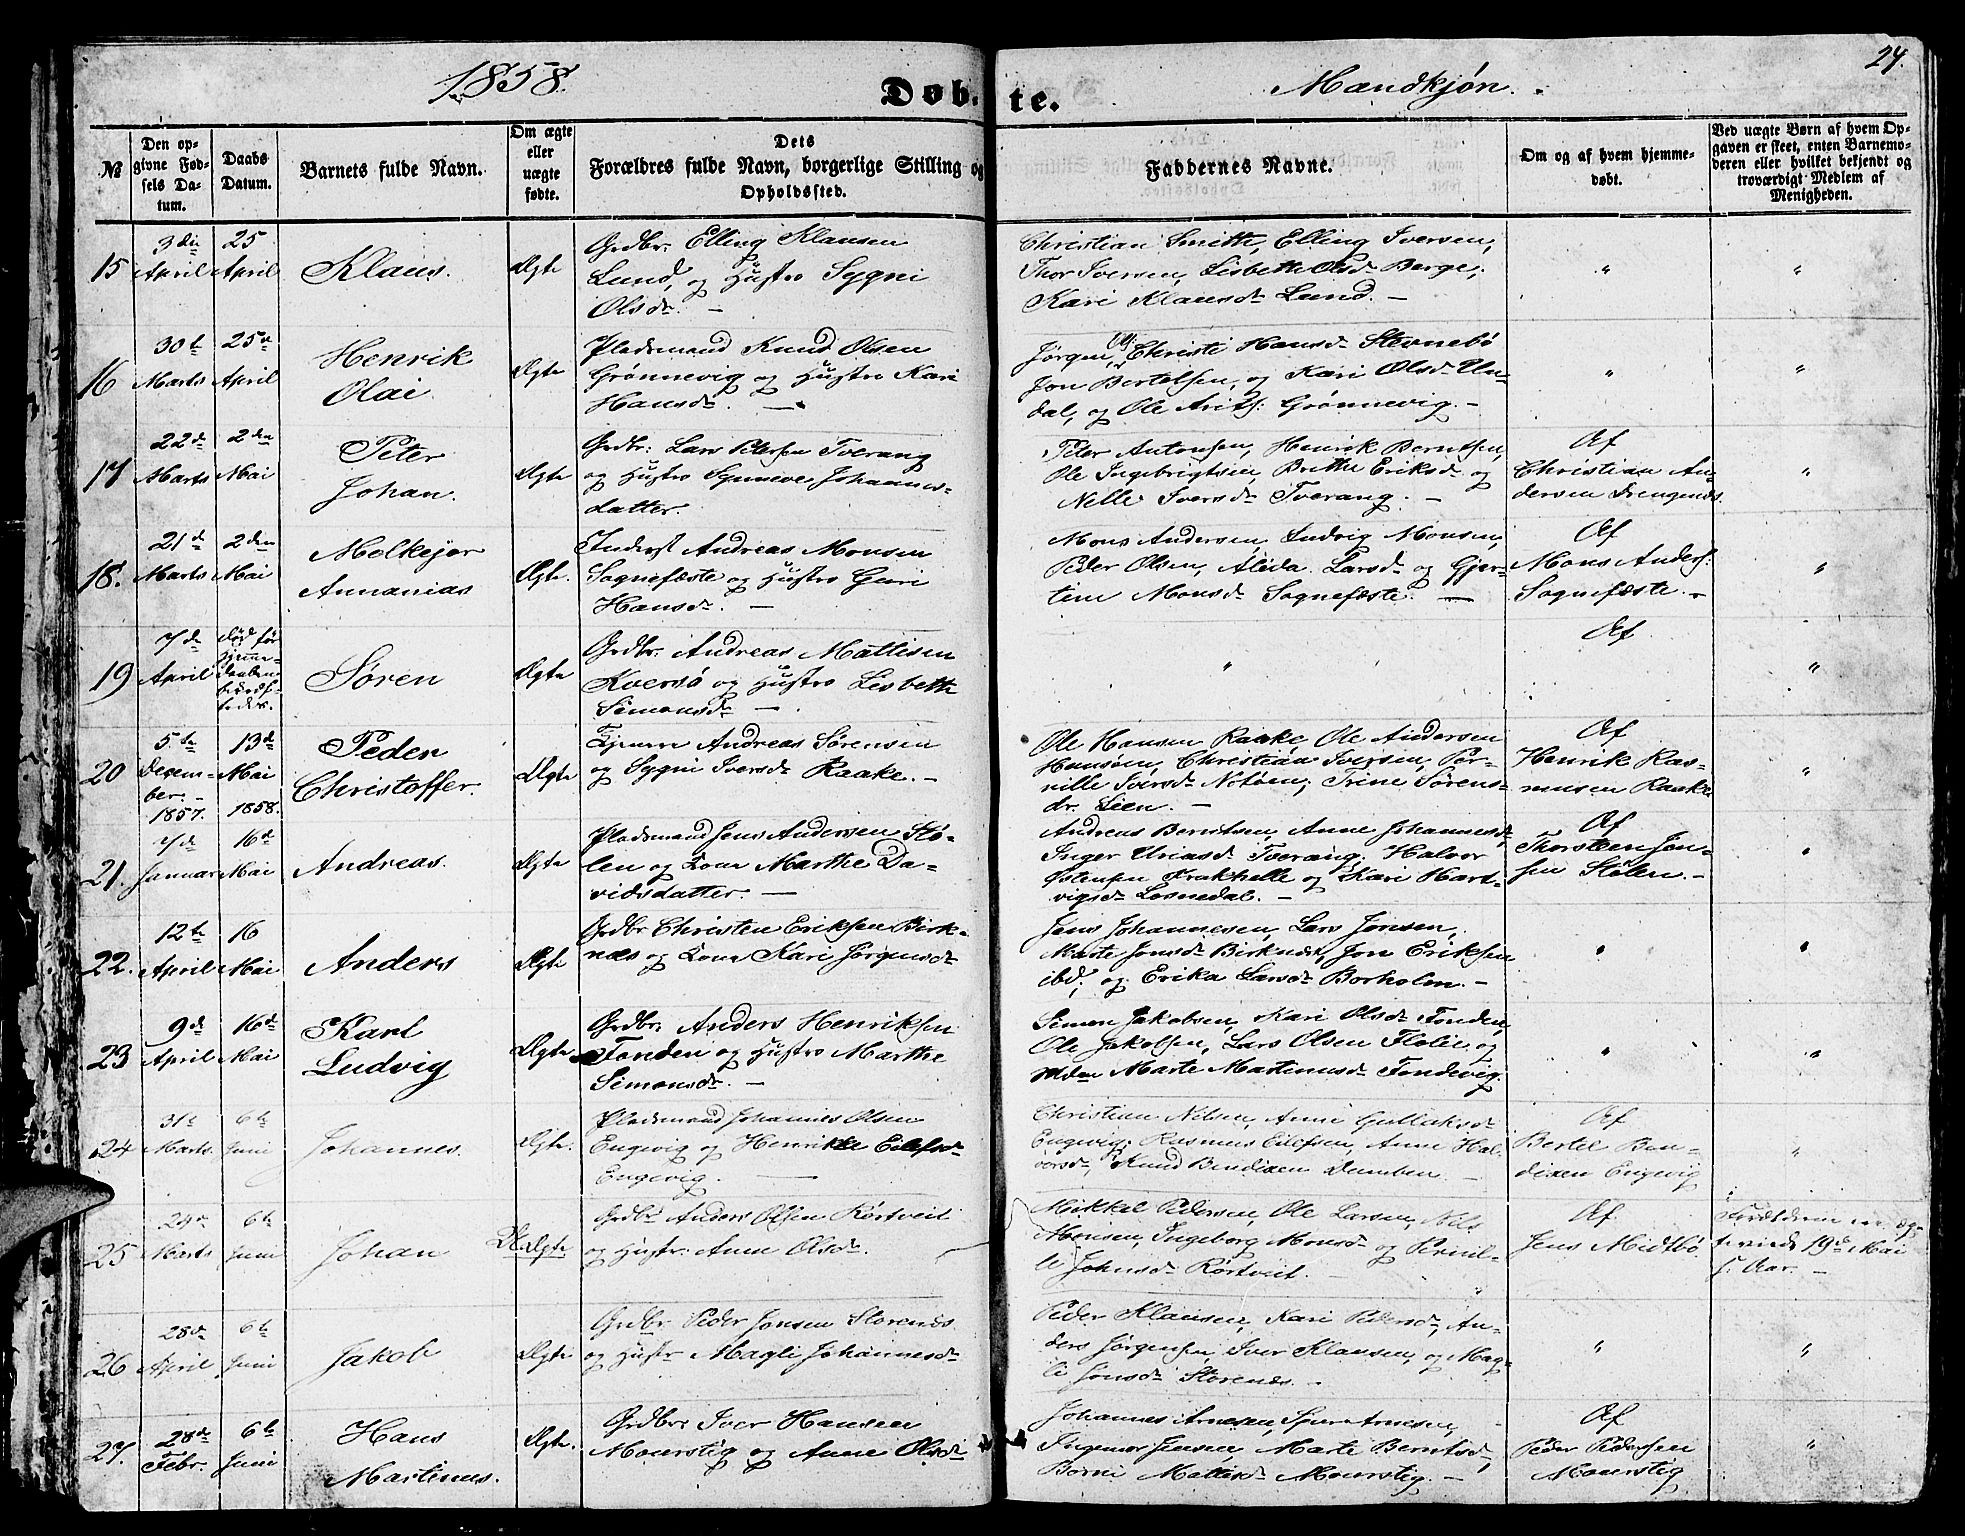 1858.
Døb-
te.
Mandkjøn.
24.
№
Den op-
givne Fød-
sels Da-
tum.
Daabs
Datum.
Barnets fulde Navn.
Om ægte
eller
uægte
fødte.
Dets
Forældres fulde Navn, borgerlige Stilling og
Opholdssted.
Faddernes Navne.
Om og af hvem hjemme-
døbt.
Ved uægte Børn af hvem Op-
gaven er skeet, enten Barnemo-
deren eller hvilket bekjendt og
troværdigt Medlem af
Menigheden.
15
3die
April
25
April
Klaus.
Ægte
Grdbr. Elling Klausen
Lund, og Hustro Sygni
Olsdr. —
Christian Smith, Elling Iversen,
Thor Iversen, Lisbeth Olsdr Berge,
Kari Klausdr Lund. —
"
"
16
30te
Marts
25de
April
Henrik
Olai.
Ægte
Pladsmand Knud Olsen
Grønnevig og Hustro Kari
Hansdr. —
Jørgen Christi Hansdr Stevnebø
Jon Bertelsen, og Kari Olsdr Un-
dal, og Ole Grønnevig. —
"
"
17
22de
Marts
2den
Mai
Peter
Johan.
Ægte
Grdbr: Lars Petersen Tverang
og Hustro Synneve Johannes-
datter.
Peter Antonsen, Henrik Berntsen,
Ole Ingebrigtsen, Brithe Eriksdr og
Nelle Iversdr Tverang. —
Af
Christian An-
dersen Drengenes.
"
18.
21de
Marts
2den
Mai
Melkejor
Annanias
Ægte.
Inderst Andreas Monsen
Sognefæste og Hustro Guri
Hansdr. —
Mons Andersen, Ludvig Monsen,
Peder Olsen, Alida Larsdr og Gjer-
tine Monsdr Sognefæste. —
Af
Mons Anders:
Sognefæste. —
"
19
7de
April
død før
Hjemme-
daaben
bekræf-
tedes.
Søren
Ægte
Grdbr. Andreas Mattisen
Kversø og Hustro Lisbeth
Simonsdr —
"
Af
"
20
5te
Decem-
ber
1857.
13de
Mai
1858.
Peder
Christoffer.
Ægte
Andreas Sørensen
og Sygni Iversdr Raake. —
Ole Hansen Raake, Ole Andersen
Christian Iversen, Per-
nille Iversdr Notøen; Trine Sørens-
dr. Lien. —
Af
Henrik Ras-
musen Raake
"
21.
7de
Januar
16de
Mai
Andreas.
Ægte
Pladsmand Jens Andersen Stø-
len og Kone Marthe Da-
vidsdatter. —
Andreas Berntsen, Anne Johannesdr
Inger Uriasdr Tverang; Halvor
Østensen Krakhelle og Kari Hart-
vigsdr Losnedal. —
Af
Thorsteen Jen-
sen Stølen. —
"
22.
12te
April
16
Mai
Anders
Ægte
Grdbr Christen Eriksen Birk-
næs og Kone Kari Jørgensdr
Jens Johannesen, Lars Jonsen,
Marte Jonsdr Birknæs, Jon Eriksen
ibd; og Erika Larsdr Borholm. —
"
"
23
9de
April
16de
Mai
Karl
Ludvig
Ægte
Grdbr: Anders Henriksen
Tonden og Hustro Marthe
Simonsdr. —
Simon Jakobsen, Kari Olsdr Tonden,
Ole Jakobsen, Lars Olsen Flolie og
Marte Martinusdr Tondevig.
"
"
24
31te
Marts
6te
Juni
Johannes.
Ægte.
Pladsmand Johannes Olsen
Engevig og Henrikke Eilefsdr
Engevig. —
Christian Nilsen, Anne Gullaksdr
Engevig, Rasmus Eilefsen, Anne Hal-
vorsdr, Knud Bendixen —
Af
Bertel Ben-
dixen Engevig
"
25
24de
Marts
6te
Juni
Johan
Ægte
Grdbr Anders Olsen Rørtveit
og Hustr: Anne Olsdr.
Mikkel Pedersen, Ole Larsen, Nils
Monsen, Ingeborg Monsdr og Pernil-
le Johnsdr Rørtveit. —
Af
Jens Midtbø
Forældrene ere æg-
teviede 19de Mai
s: Aar. —
26
28de
April
6te
Juni
Jakob
Ægte
Grdbr Peder Jonsen Storenæs
og Hustr Magli Johannesdr
Peder Klausen, Kari Pedersdr, An-
ders Jørgensen, Iver Klausen, og Mag-
li Jonsdr Storenæs. —
"
"
27.
28de
Febr.
6te
Juni
Hans
Martinus.
Ægte.
Grdbr: Iver Hansen
Mouerstig og Anne Olsdr
Johannes Arnesen, Arnesen,
Ingemor Jensen, Marte Berntsdr,
Børni Mattisdr Mouerstig. —
Af
Peder Pedersen
Mouerstig
"